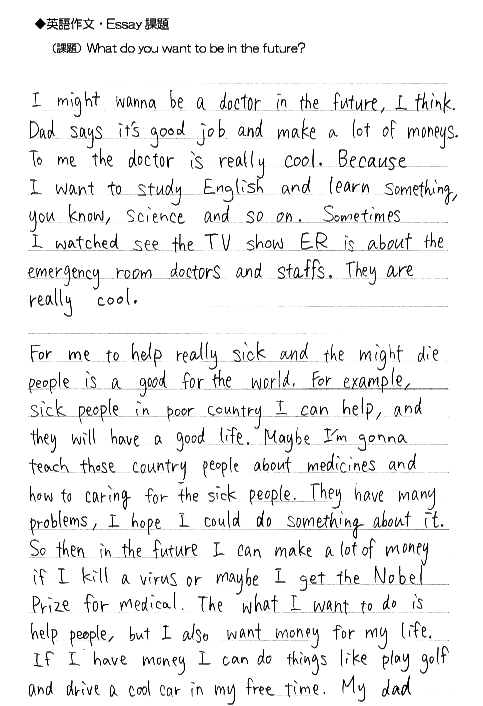 ◆英語作文・Essay 課題
（課題）What do you want to be in the future?
I might wanna be a doctor in the future, I think.
Dad says it's good job and make a lot of moneys.
To me the doctor is really cool. Because
I want to study English and learn something,
you know, science and so on. Sometimes
I watched see the TV show ER is about the
emergency room doctors and staffs. They are
really cool.
For me to help really sick and the might die
people is a good for the world. For example,
sick people in poor country I can help, and
they will have a good life. Maybe I'm gonna
teach those country people about medicines and
how to caring for the sick people. They have many
problems, I hope I could do something about it.
So then in the future I can make a lot of money
if I kill a virus or maybe I get the Nobel
Prize for medical. The what I want to do is
help people, but I also want money for my life.
If I have money I can do things like play golf
and drive a cool car in my free time. My dad